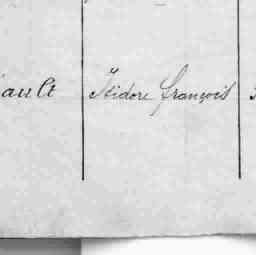 ault Isidore François